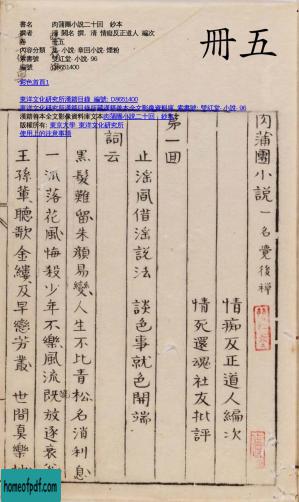 書名 肉蒲團小說二十回 鈔本
撰者 明 闕名 撰, 清 情癡反正道人 編次
卷 卷五
內容分類 集-小說-章回小說-煙粉
索書號 雙紅堂-小說-96
編號 D8651400
彩色首頁1
東洋文化研究所漢籍目錄 編號: D8651400
東洋文化研究所漢籍目錄所藏漢籍善本全文影像資料庫 索書號: 雙紅堂-小說-96
漢籍善本全文影像資料庫文本肉蒲團小說二十回, 鈔本
版權所有: 東京大學 東洋文化研究所
使用上の注意事項
五冊
肉蒲團小說 一名覺後禪
情痴反正道人編次
情死還魂社友批評
第一回
止淫風借淫說法 談色事就色開端
詞云
黑髮難留朱顏易變人生不比青松名消利息
一派落花風悔殺少年不樂風流既放逐衰翁
王孫輩聽歌金縷及早戀芳叢 世間真樂
homeofpdf.com